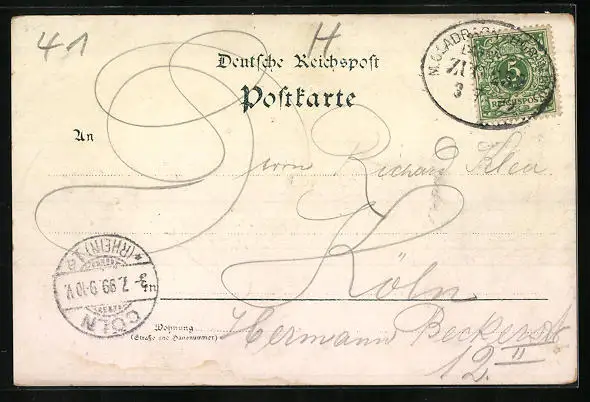 41 H
Deutsche Reichspost
Postkarte
M.GLADBACH
ZUG
3
5
REICHSPOST
An
Herrn Richard Klein
in Köln
Wohnung
(Straße und Hausnummer)
Hermann Beckerstr
12.II
CÖLN
7. 99. 9-10 V.
* (RHEIN) 1 a